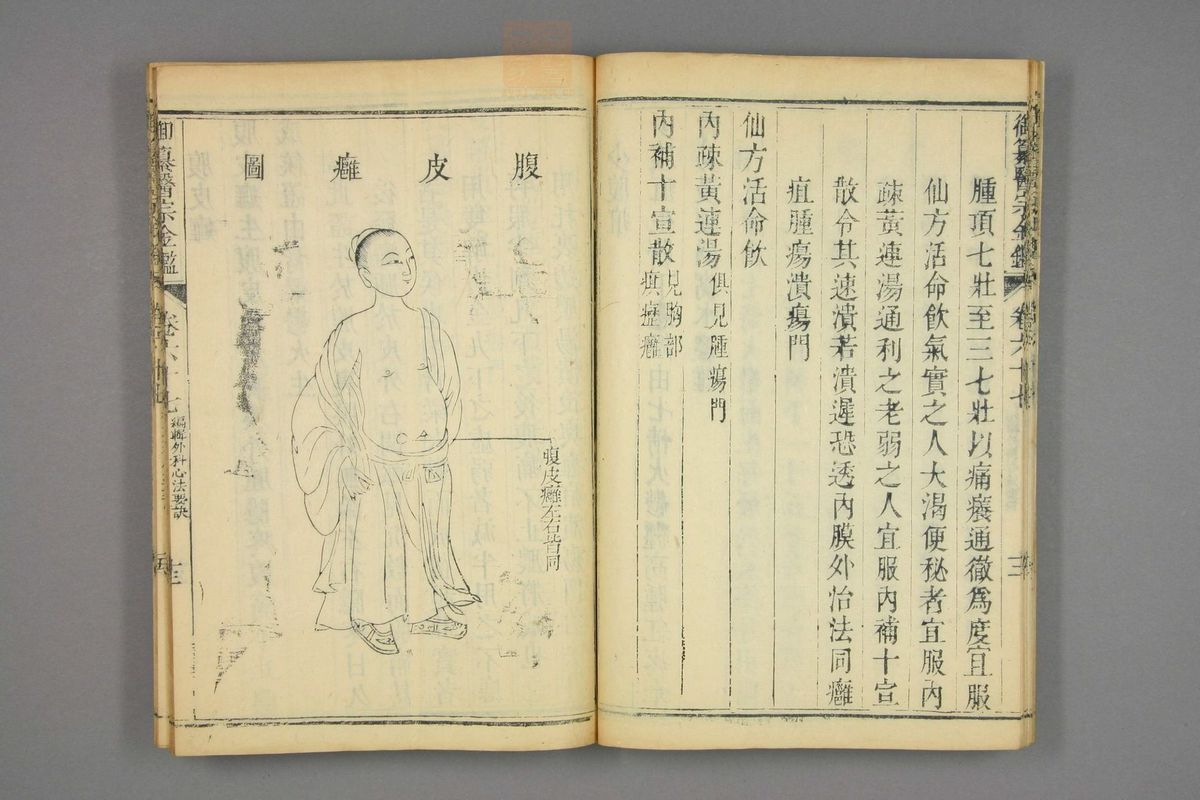 御纂醫宗金鑑 卷六十七
腫頂七壯至三七壯以痛癢通徹爲度宜服
仙方活命飲氣實之人大渴便秘者宜服內
疎黃連湯通利之老弱之人宜服內補十宣
散令其速潰若潰遲恐透內膜外治法同癰
疽腫瘍潰瘍門
仙方活命飲
內疎黃連湯俱見腫瘍門
內補十宣散見胸部
癰
三
腹皮癰圖
腹皮癰左右皆同
御纂醫宗金鑑
編輯外科心法要訣